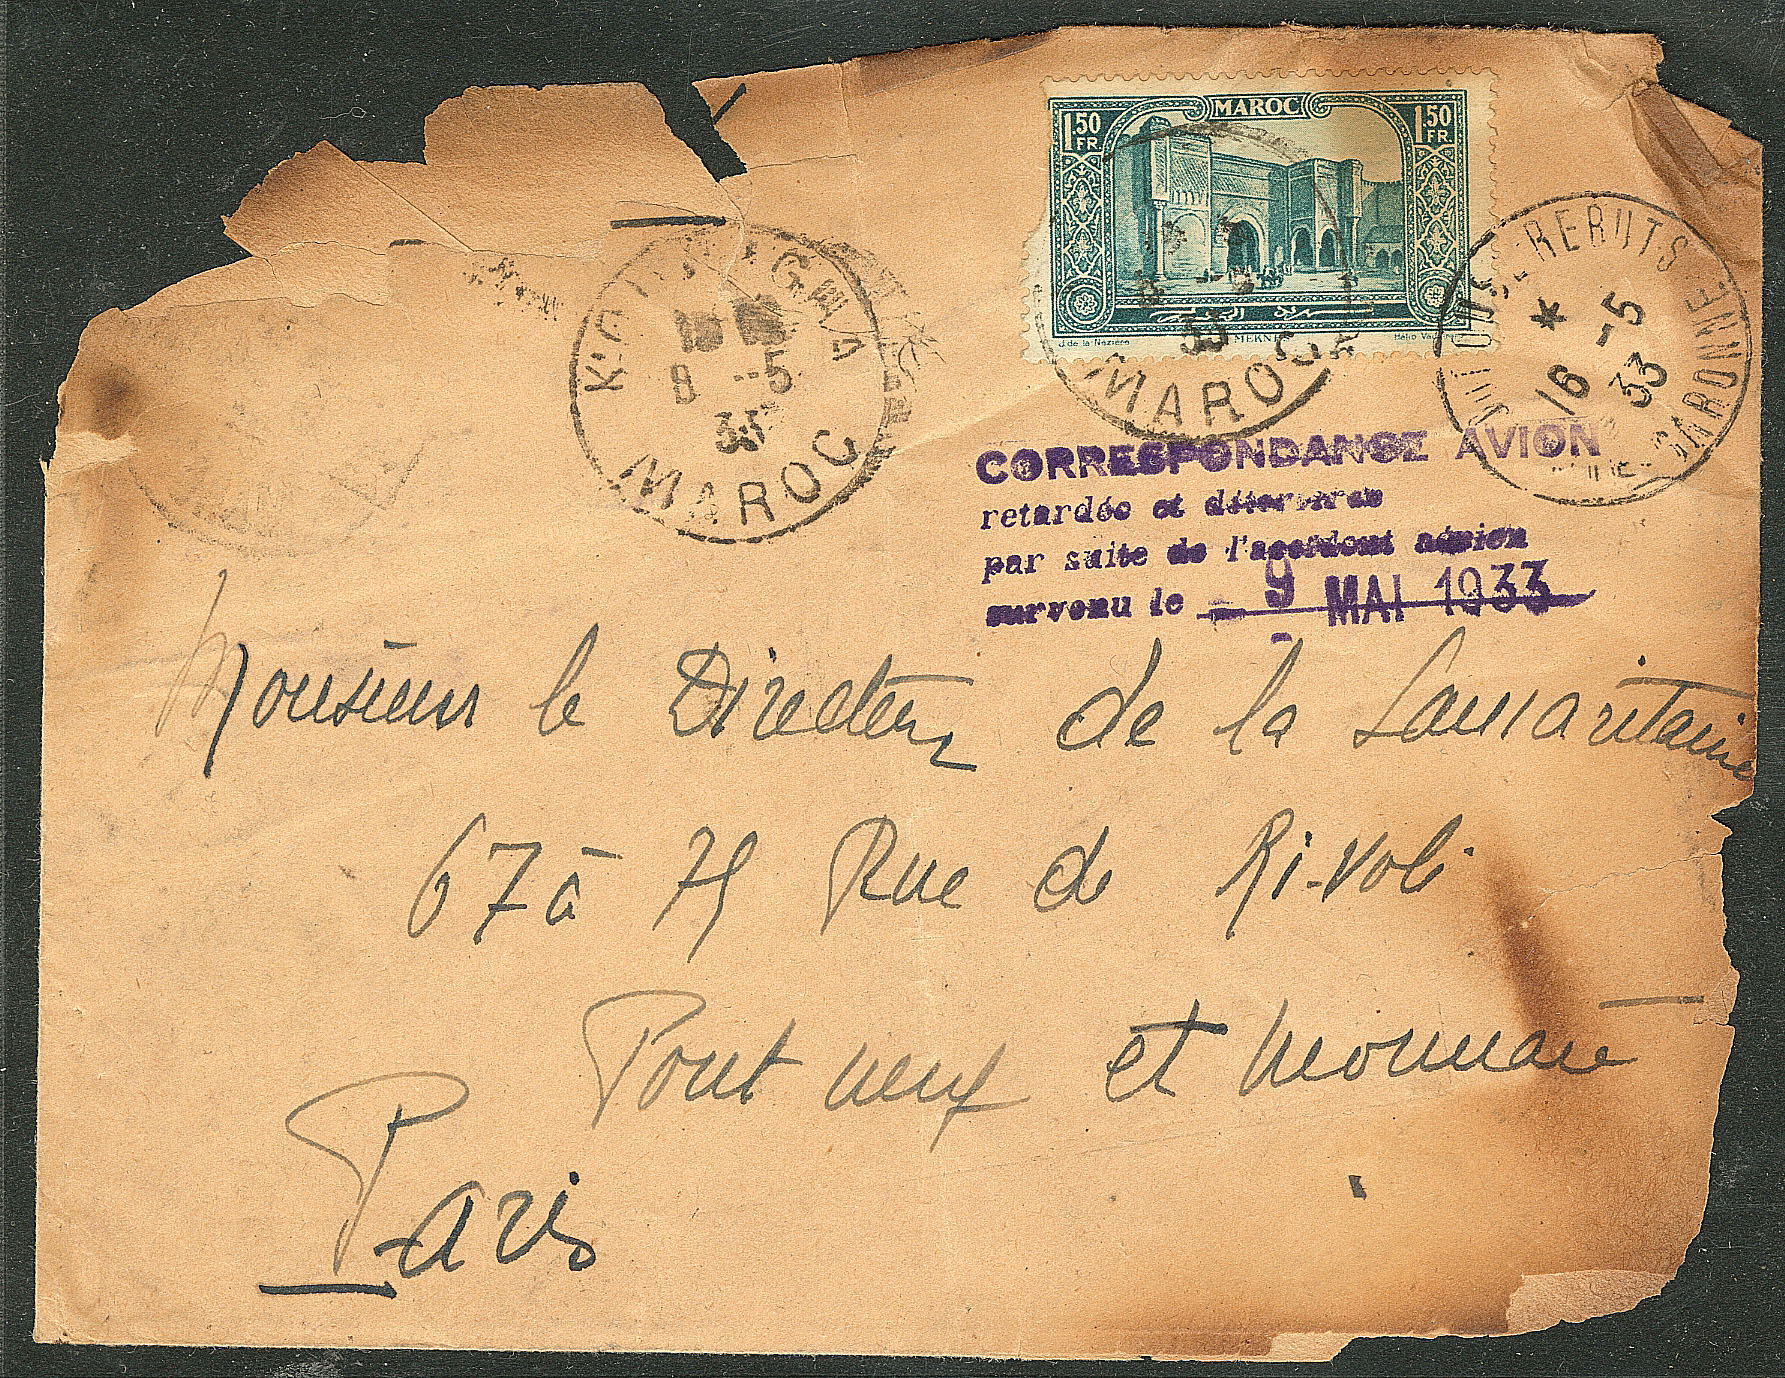 MAROC
1.50 FR.
1.50 FR.
J. de la Nezière
MAROC
8 -5
33
MAROC
33
MAROC
REBUTS
GARONNE
*
16 -5
33
CORRESPONDANCE AVION
retardée et
par suite de l'accident aérien
survenu le - 9 MAI 1933
Monsieur le Directeur de la Samaritaine
67 à 75 Rue de Rivoli
Pont neuf et Monnaie
Paris